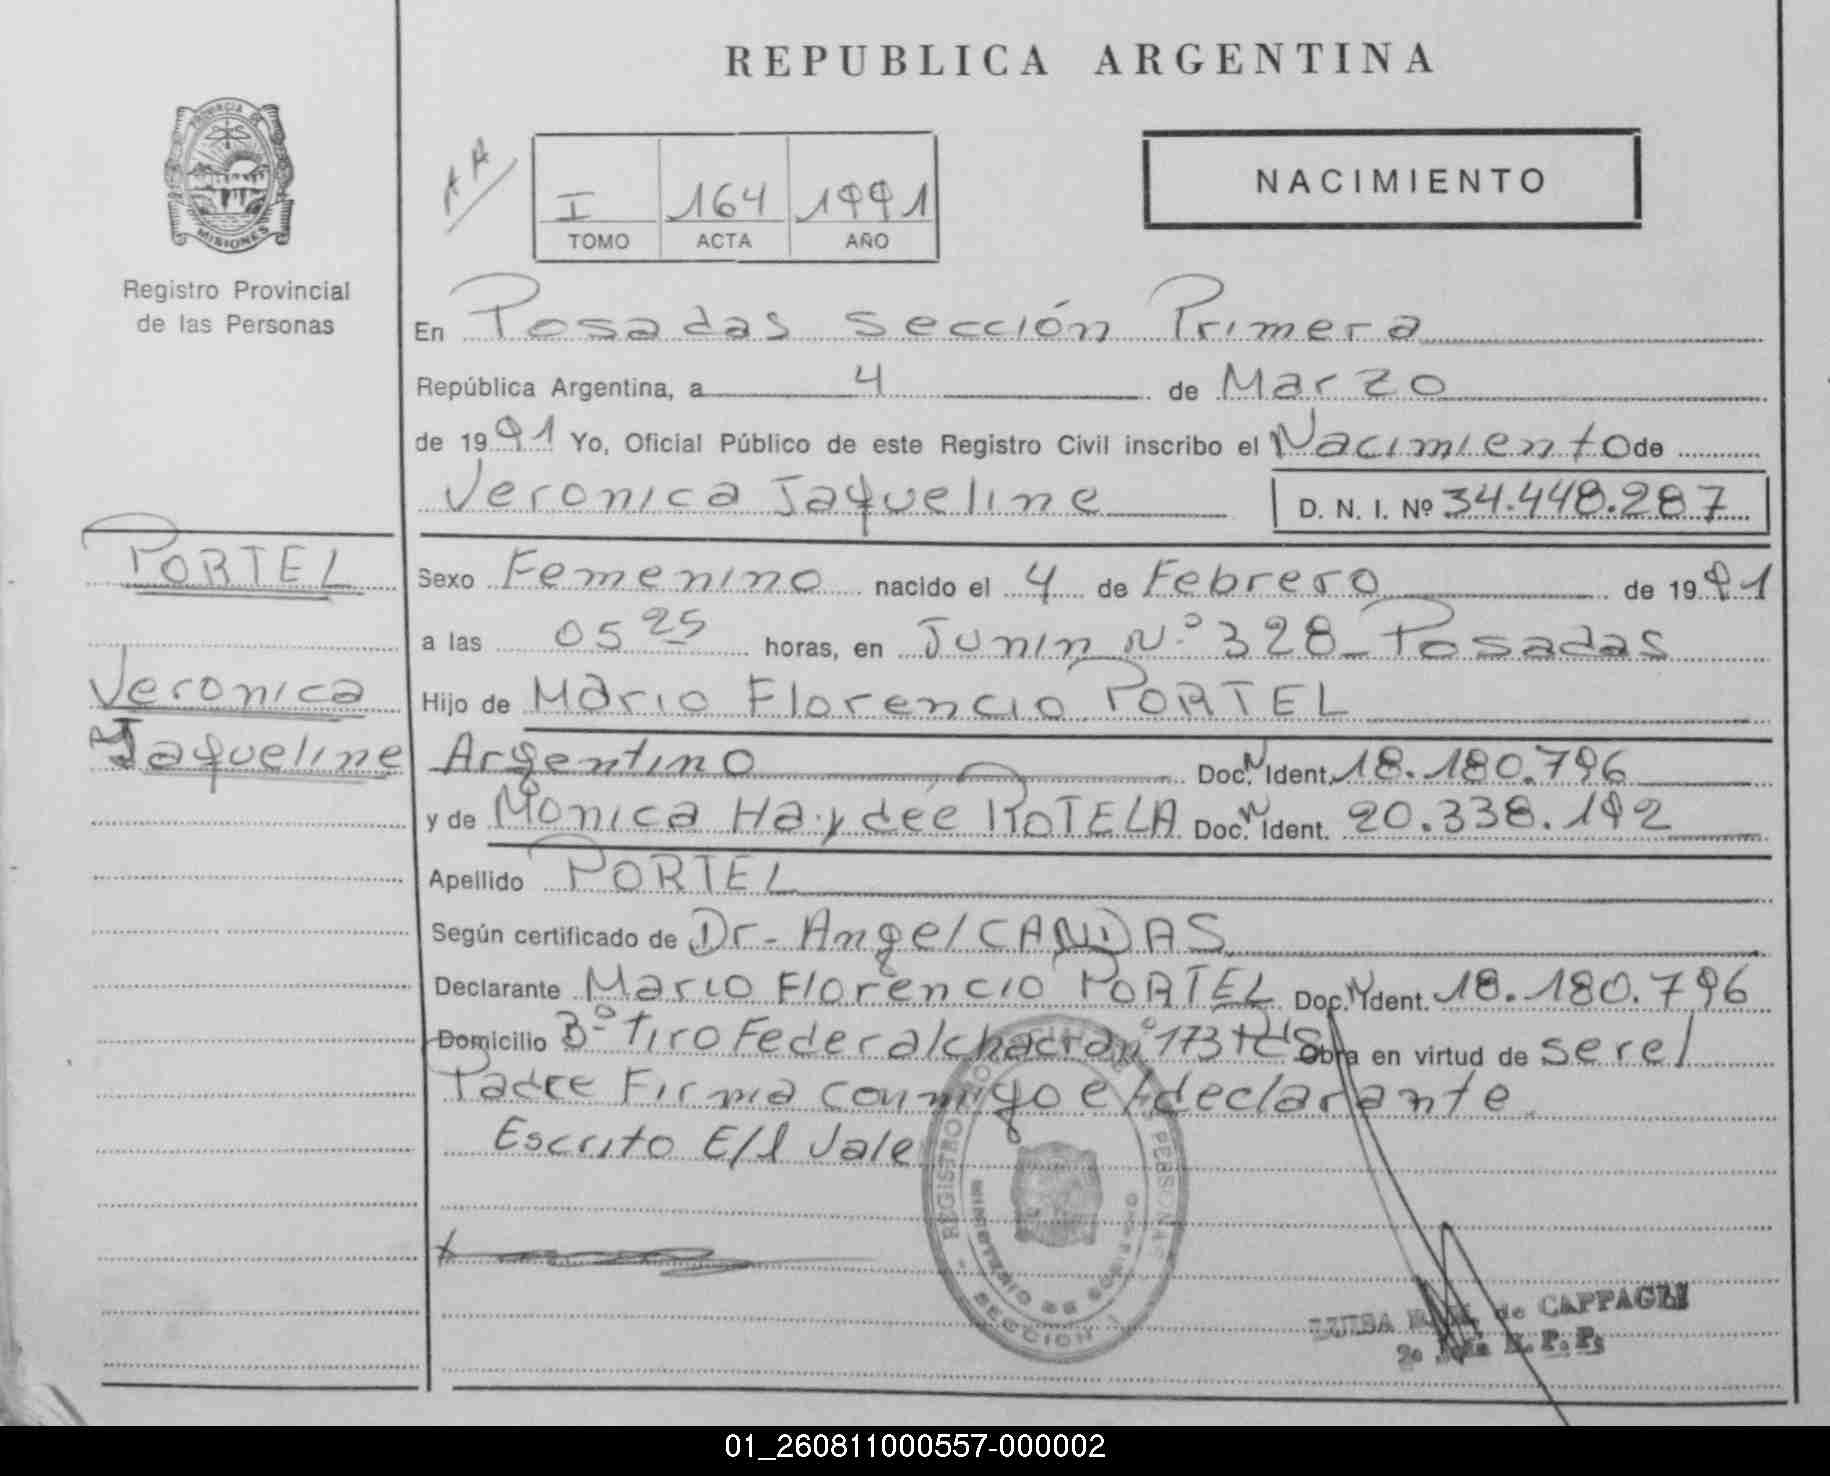 REPUBLICA ARGENTINA
PROVINCIA DE
MISIONES
Registro Provincial
de las Personas
AA
I 164 1991
TOMO ACTA AÑO
NACIMIENTO
En Posadas sección Primera
República Argentina, a 4 de Marzo
de 1991 Yo, Oficial Público de este Registro Civil inscribo el Nacimiento de
Veronica Jaqueline D. N. I. Nº 34.448.287
PORTEL
Veronica
Jaqueline
Sexo Femenino nacido el 4 de Febrero de 1991
a las 05 25 horas, en Junin N.º 328_Posadas
Hijo de Mario Florencio PORTEL
Argentino Doc. N Ident. 18.180.796
y de Monica Haydeé ROTELA Doc. N Ident. 20.338.192
Apellido PORTEL
Según certificado de Dr. Angel CANDAS
Declarante Mario Florencio PORTEL Doc. N Ident. 18.180.796
Domicilio Bº Tiro Federal chacra nº 173 Pds Obra en virtud de ser el
Padre Firma conmigo el declarante
Escrito E/l Vale
REGISTRO PROVINCIAL DE LAS PERSONAS
MINISTERIO DE GOBIERNO
SECCION 1
LUISA de CAPPAGLI
2º Jefa R. P. P.
01_260811000557-000002